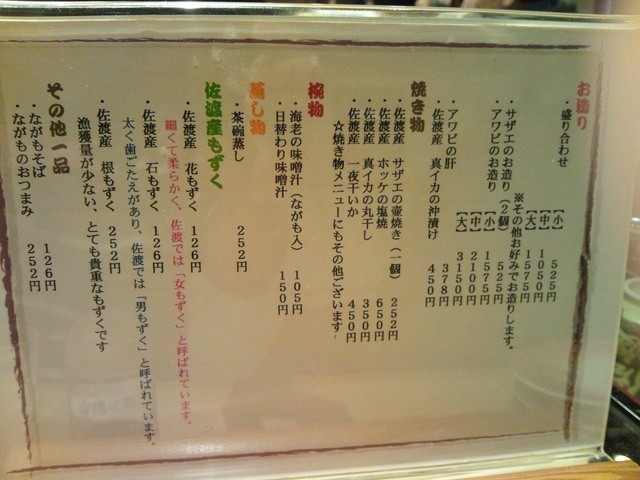 お造り
・盛り合わせ
【小】 525円
【中】 1050円
【大】 1575円
※その他お好みでお造りします。
・サザエのお造り(2個) 525円
・アワビのお造り
【小】 1575円
【中】 2100円
【大】 3150円
・アワビの肝 378円
・佐渡産 真イカの沖漬け 450円
焼き物
・佐渡産 サザエの壷焼き(一個) 252円
・佐渡産 ホッケの塩焼 650円
・佐渡産 真イカの丸干し 350円
・佐渡産 一夜干いか 450円
☆焼き物メニューにもその他ございます
椀物
・海老の味噌汁(ながも入) 105円
・日替わり味噌汁 150円
蒸し物
・茶碗蒸し 252円
佐渡産もずく
・佐渡産 花もずく 126円
細くて柔らかく、佐渡では「女もずく」と呼ばれています。
・佐渡産 石もずく 126円
太く歯ごたえがあり、佐渡では「男もずく」と呼ばれています。
・佐渡産 根もずく 252円
漁獲量が少ない、とても貴重なもずくです
その他一品
・ながもそば 126円
・ながものおつまみ 252円